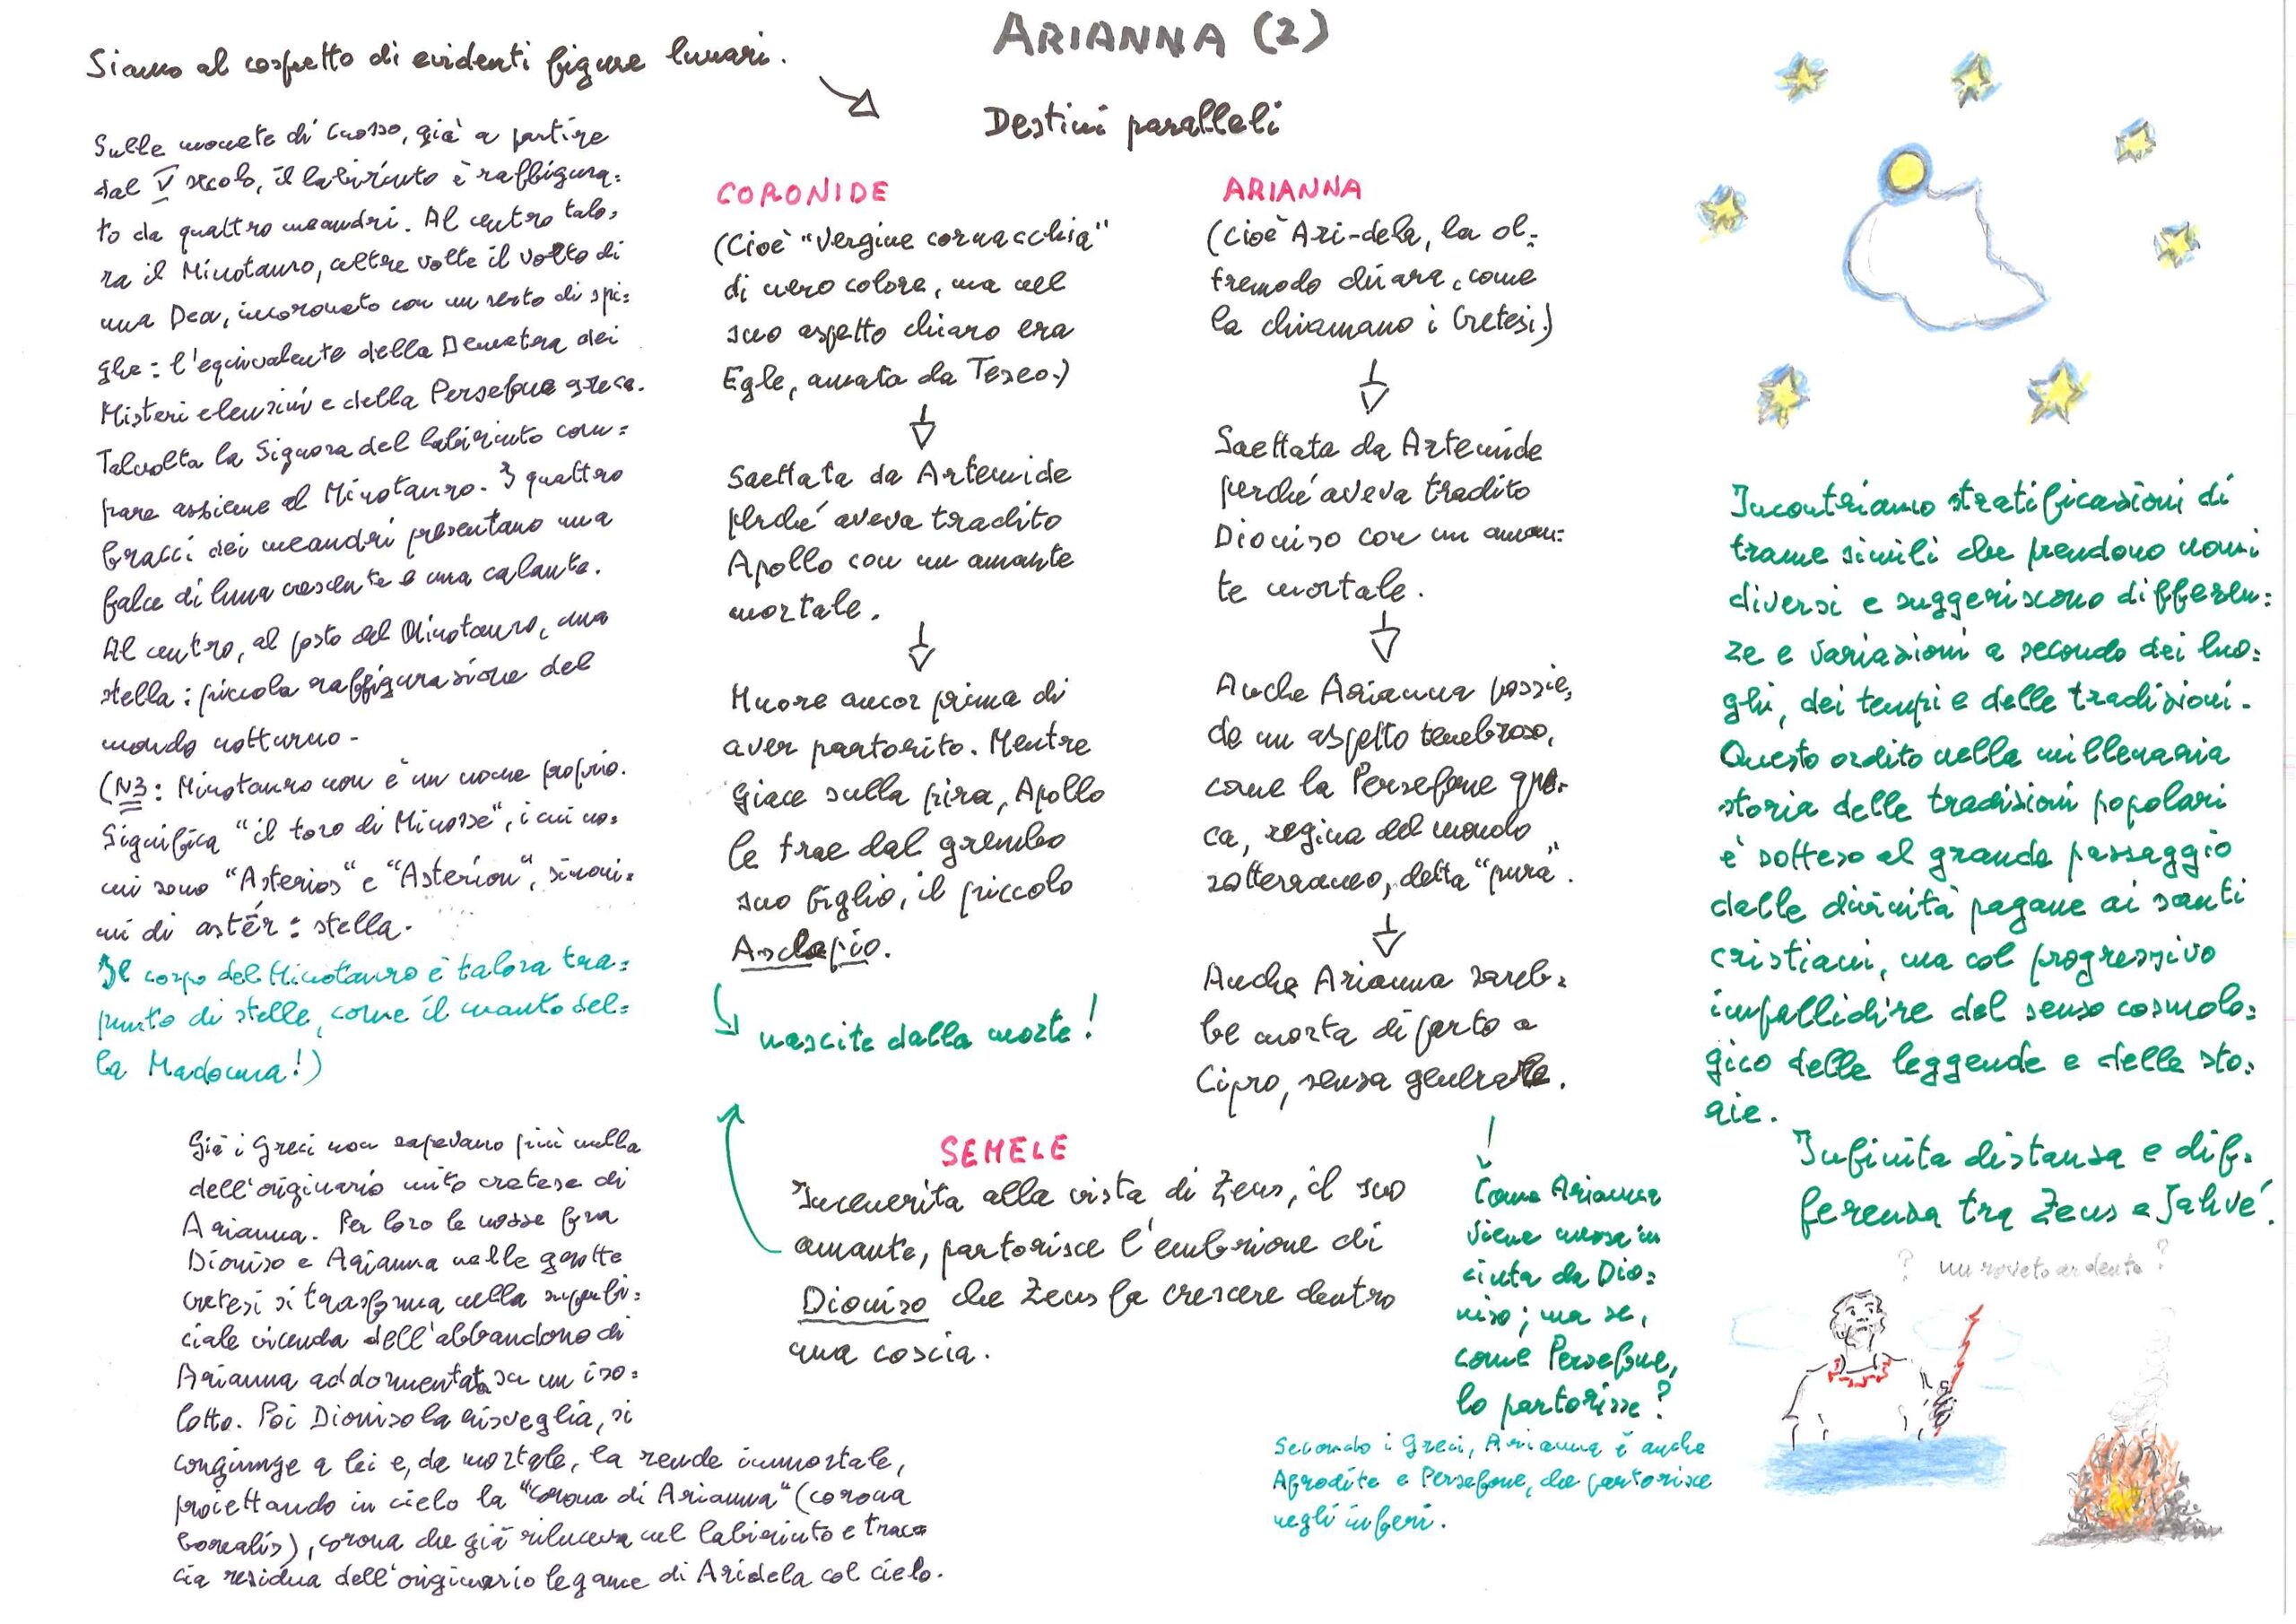 ARIANNA (2)
Siamo al cospetto di evidenti figure lunari.
Destini paralleli
Sulle monete di Cnosso, già a partire
dal V secolo, il labirinto è raffigura=
to da quattro meandri. Al centro talo=
ra il Minotauro, altre volte il volto di
una Dea, incoronato con un serto di spi=
ghe: l'equivalente della Demetra dei
Misteri eleusini e della Persefone greca.
Talvolta la Signora del labirinto com=
pare assieme al Minotauro. I quattro
bracci dei meandri presentano una
falce di luna crescente e una calante.
Al centro, al posto del Minotauro, una
stella: piccola raffigurazione del
mondo notturno -
(NB: Minotauro non è un nome proprio.
Significa "il toro di Minosse", i cui no=
mi sono "Asterios" e "Asterion", sinoni=
mi di astér: stella.
Il corpo del Minotauro è talora tra=
punto di stelle, come il manto del=
la Madonna!)
Già i Greci non sapevano più nulla
dell'originario mito cretese di
Arianna. Per loro le nozze fra
Dioniso e Arianna nelle grotte
cretesi si trasforma nella superfi=
ciale vicenda dell'abbandono di
Arianna addormentata su un iso=
lotto. Poi Dioniso la risveglia, si
congiunge a lei e, da mortale, la rende immortale,
proiettando in cielo la "corona di Arianna" (corona
borealis), corona che già riluceva nel labirinto e trac=
cia residua dell'originario legame di Aridela col cielo.
CORONIDE
(Cioè "Vergine cornacchia"
di nero colore, ma nel
suo aspetto chiaro era
Egle, amata da Teseo.)
Saettata da Artemide
perché aveva tradito
Apollo con un amante
mortale.
Muore ancor prima di
aver partorito. Mentre
giace sulla pira, Apollo
le trae dal grembo
suo figlio, il piccolo
Asclepio.
nascite dalla morte!
SEMELE
Incenerita alla vista di Zeus, il suo
amante, partorisce l'embrione di
Dioniso che Zeus fa crescere dentro
una coscia.
ARIANNA
(cioè Ari-dela, la ol=
tremodo chiara, come
la chiamano i Cretesi.)
Saettata da Artemide
perché aveva tradito
Dioniso con un aman=
te mortale.
Anche Arianna possie=
de un aspetto tenebroso,
come la Persefone gre=
ca, regina del mondo
sotterraneo, detta "pura".
Anche Arianna sareb=
be morta di parto a
Cipro, senza generare.
Come Arianna
viene messa in
cinta da Dio=
niso; ma se,
come Persefone,
lo partorisse?
Secondo i Greci, Arianna è anche
Afrodite e Persefone, che partorisce
negli inferi.
Incontriamo stratificazioni di
trame simili che prendono nomi
diversi e suggeriscono differen=
ze e variazioni a secondo dei luo=
ghi, dei tempi e delle tradizioni.
Questo ordito nella millenaria
storia delle tradizioni popolari
è sotteso al grande passaggio
dalle divinità pagane ai santi
cristiani, ma col progressivo
impallidire del senso cosmolo=
gico delle leggende e delle sto=
rie.
Infinita distanza e dif=
ferenza tra Zeus e Jahvé!
? un roveto ardente ?